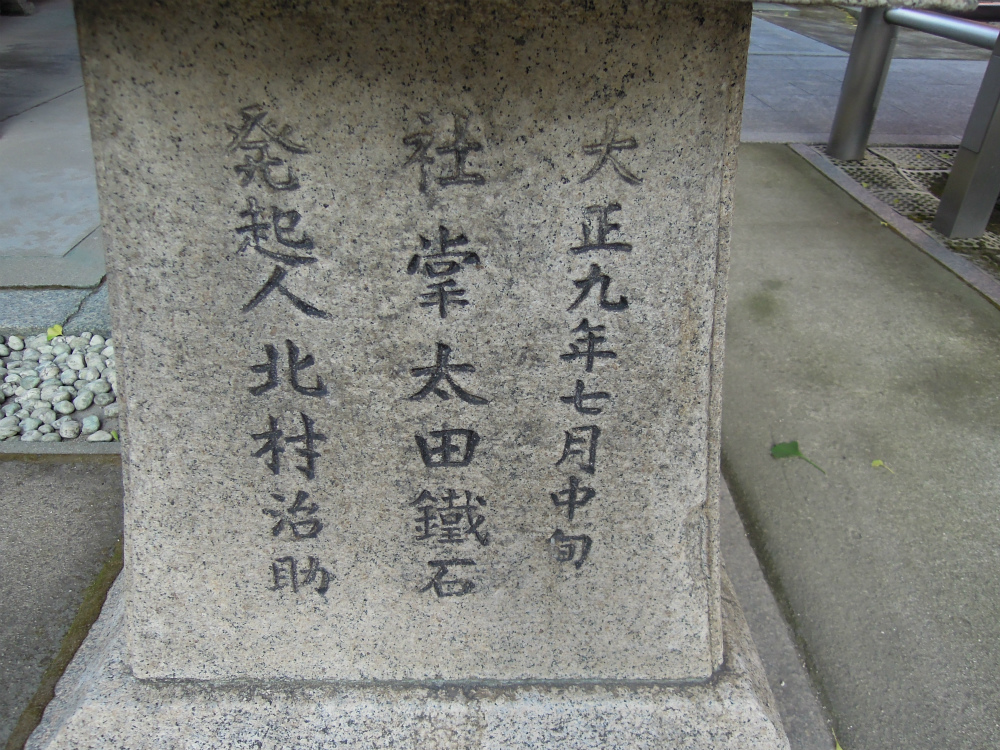 大正九年七月中旬
社掌太田鐵石
発起人北村治助